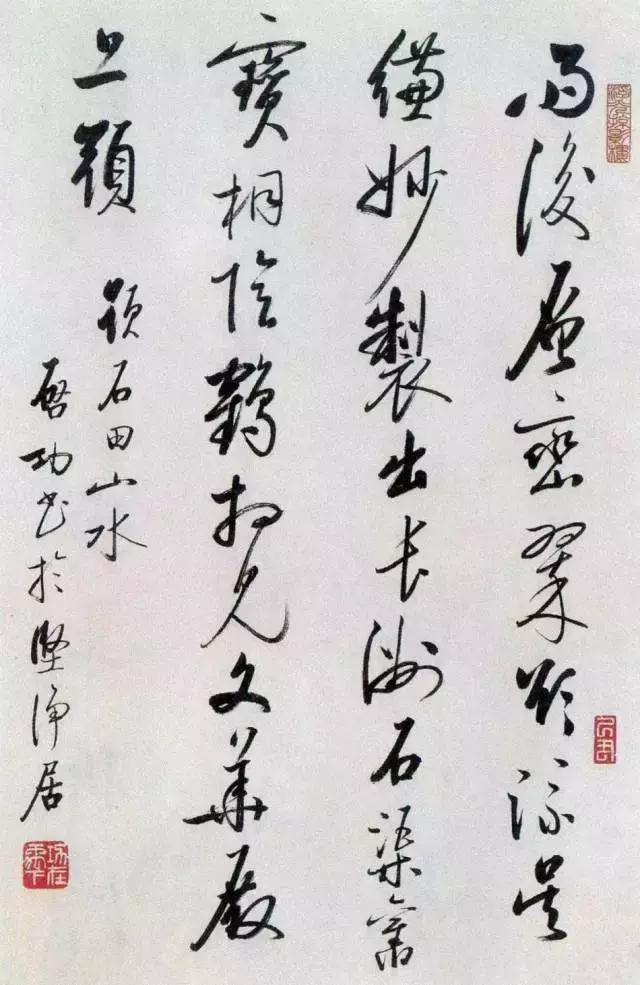 雨後層巒翠欲流吳
縑妙製出长洲石渠舊
寶桐陰鶴相見文華殿
上頭
題石田山水
啓功書於堅净居